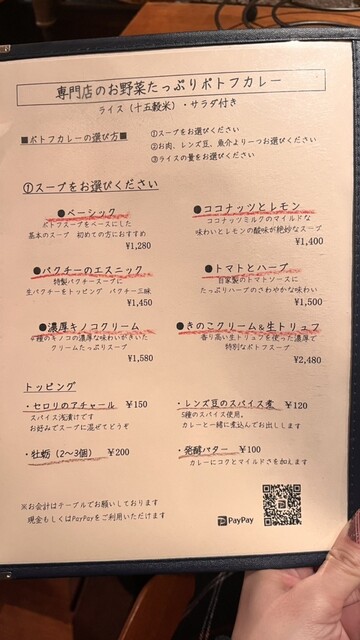 専門店のお野菜たっぷりポトフカレー
ライス（十五穀米）・サラダ付き
■ポトフカレーの選び方■
①スープをお選びください
②お肉、レンズ豆、魚介より一つお選びください
③ライスの量をお選びください
①スープをお選びください
●ベーシック
ポトフスープをベースにした
基本のスープ 初めての方におすすめ
¥1,280
●ココナッツとレモン
ココナッツミルクのマイルドな
味わいとレモンの酸味が絶妙なスープ
¥1,400
●パクチーのエスニック
特製パクチースープに
生パクチーをトッピング パクチー三昧
¥1,450
●トマトとハーブ
自家製のトマトソースに
たっぷりハーブのさわやかな味わい
¥1,500
●濃厚キノコクリーム
4種のキノコの濃厚な味わいがきいた
クリームたっぷりスープ
¥1,580
●きのこクリーム&生トリュフ
香り高い生トリュフを使った濃厚で
特別なポトフスープ
¥2,480
トッピング
・セロリのアチャール ¥150
スパイス浅漬けです
お好みでスープに混ぜてどうぞ
・レンズ豆のスパイス煮 ¥120
5種のスパイス使用。
カレーと一緒に煮込んでお出しします
・牡蛎（2〜3個） ¥200
・発酵バター ¥100
カレーにコクとマイルドさを加えます
※お会計はテーブルでお願いしております
現金もしくはPayPayをご利用いただけます
PayPay